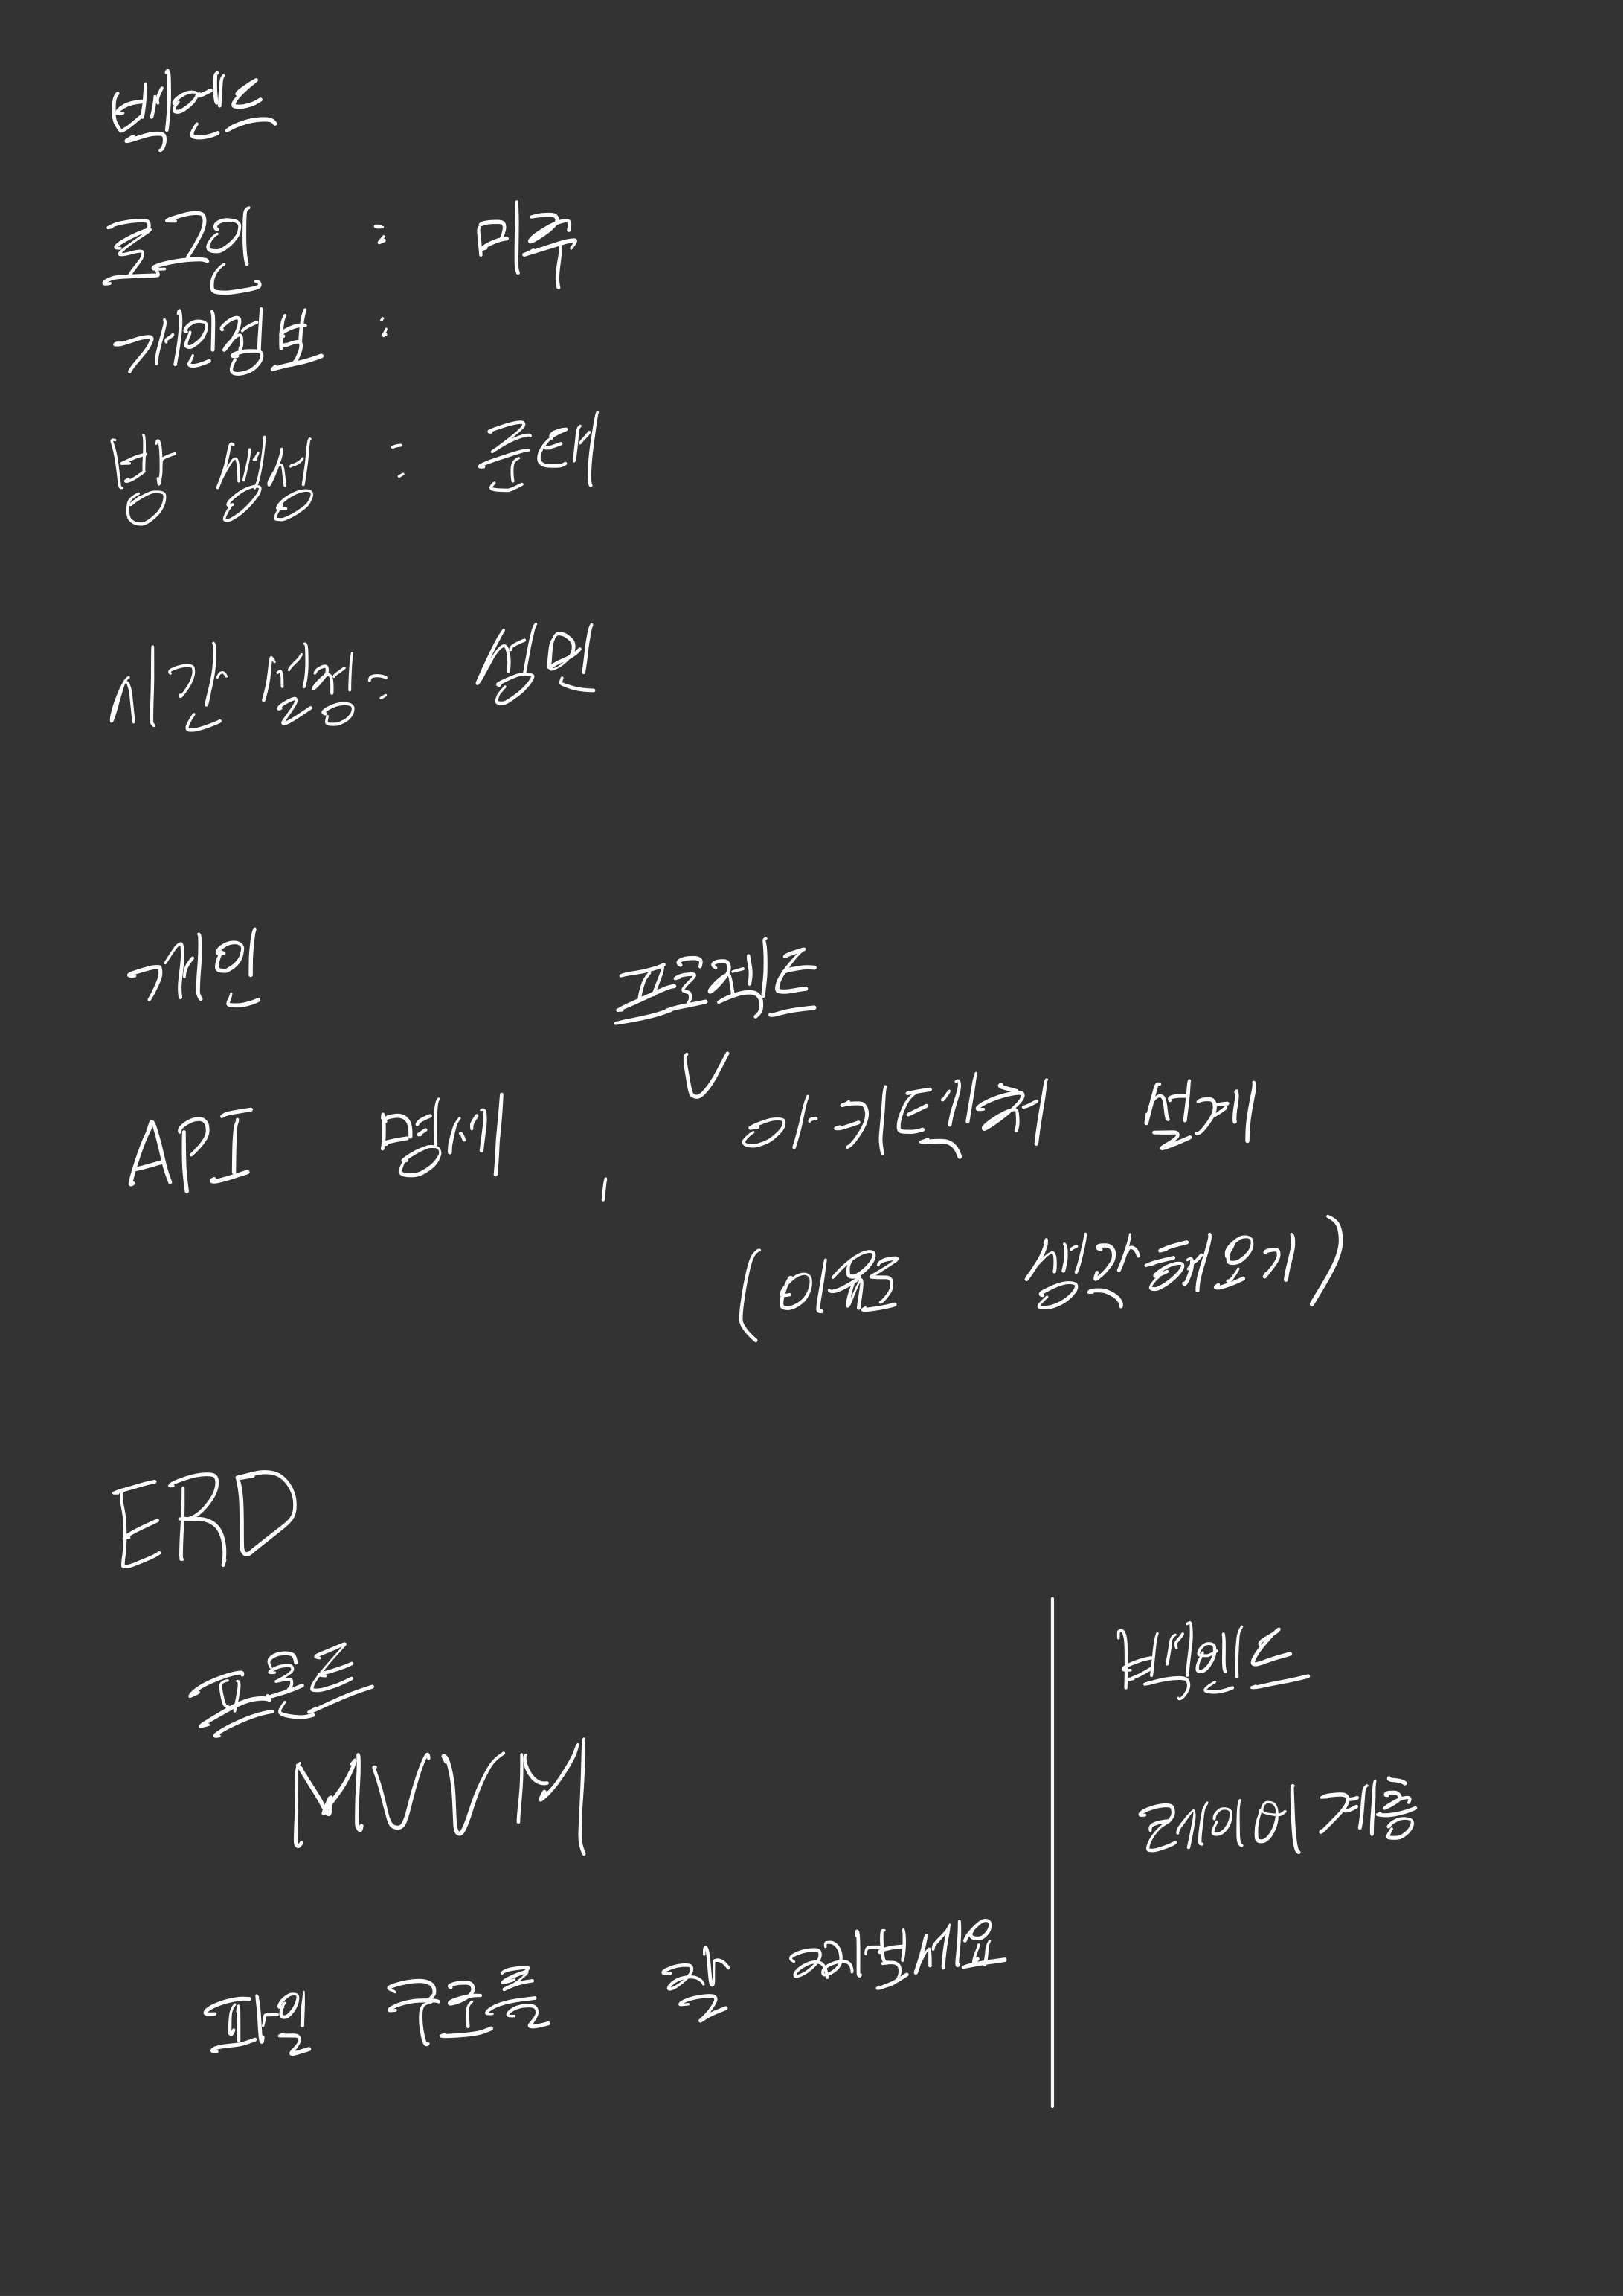 백엔드
로그인 : 미주
개인정보 :
방 생성 : 준태
시간 설정 : 성민
개인 프로젝트
API 명세 , 아키텍쳐 설계
( 이유 생각해오기 )
ERD
프론트
백엔드
MVVM
레이어 계층
파일 구조를 잘